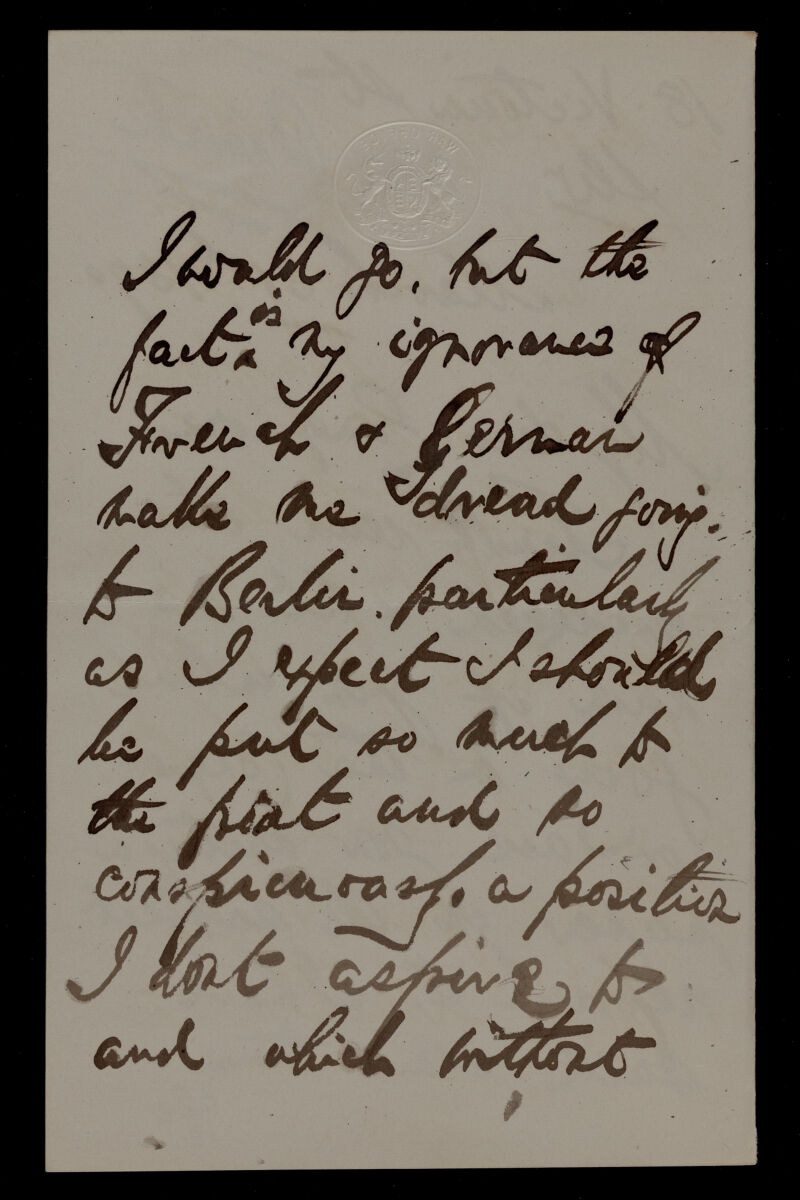 I would go, but the
fact is my ignorance of
French & German
make me dread going
to Berlin. particularly
as I expect I should
be put so much to
the front and so
conspicuously, a position
I dont aspire to
and which without